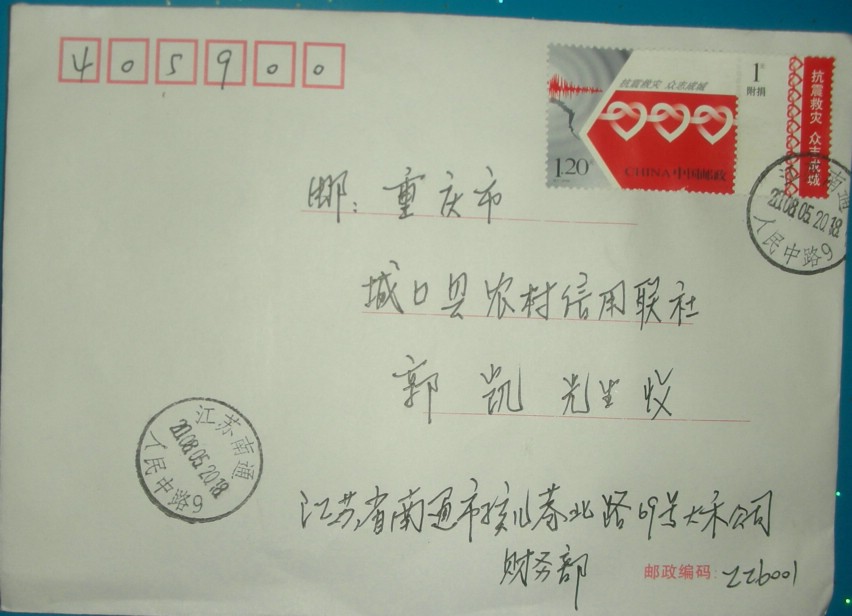 405900
抗震救灾 众志成城
1.20元
CHINA 中国邮政
1元
附捐
抗震救灾 众志成城
江苏南通
2008.05.20.18
人民中路9
邮:重庆市
城口县农村信用联社
郭凯 先生收
江苏南通
2008.05.20.18
人民中路9
江苏省南通市孩儿巷北路69号大禾公司
财务部
邮政编码: 226001